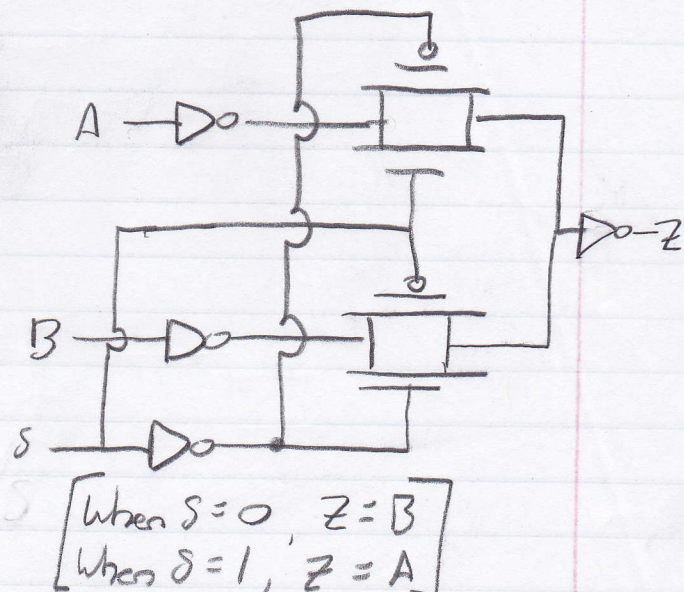 A
Z
B
S
When S=0, Z=B
When S=1, Z=A